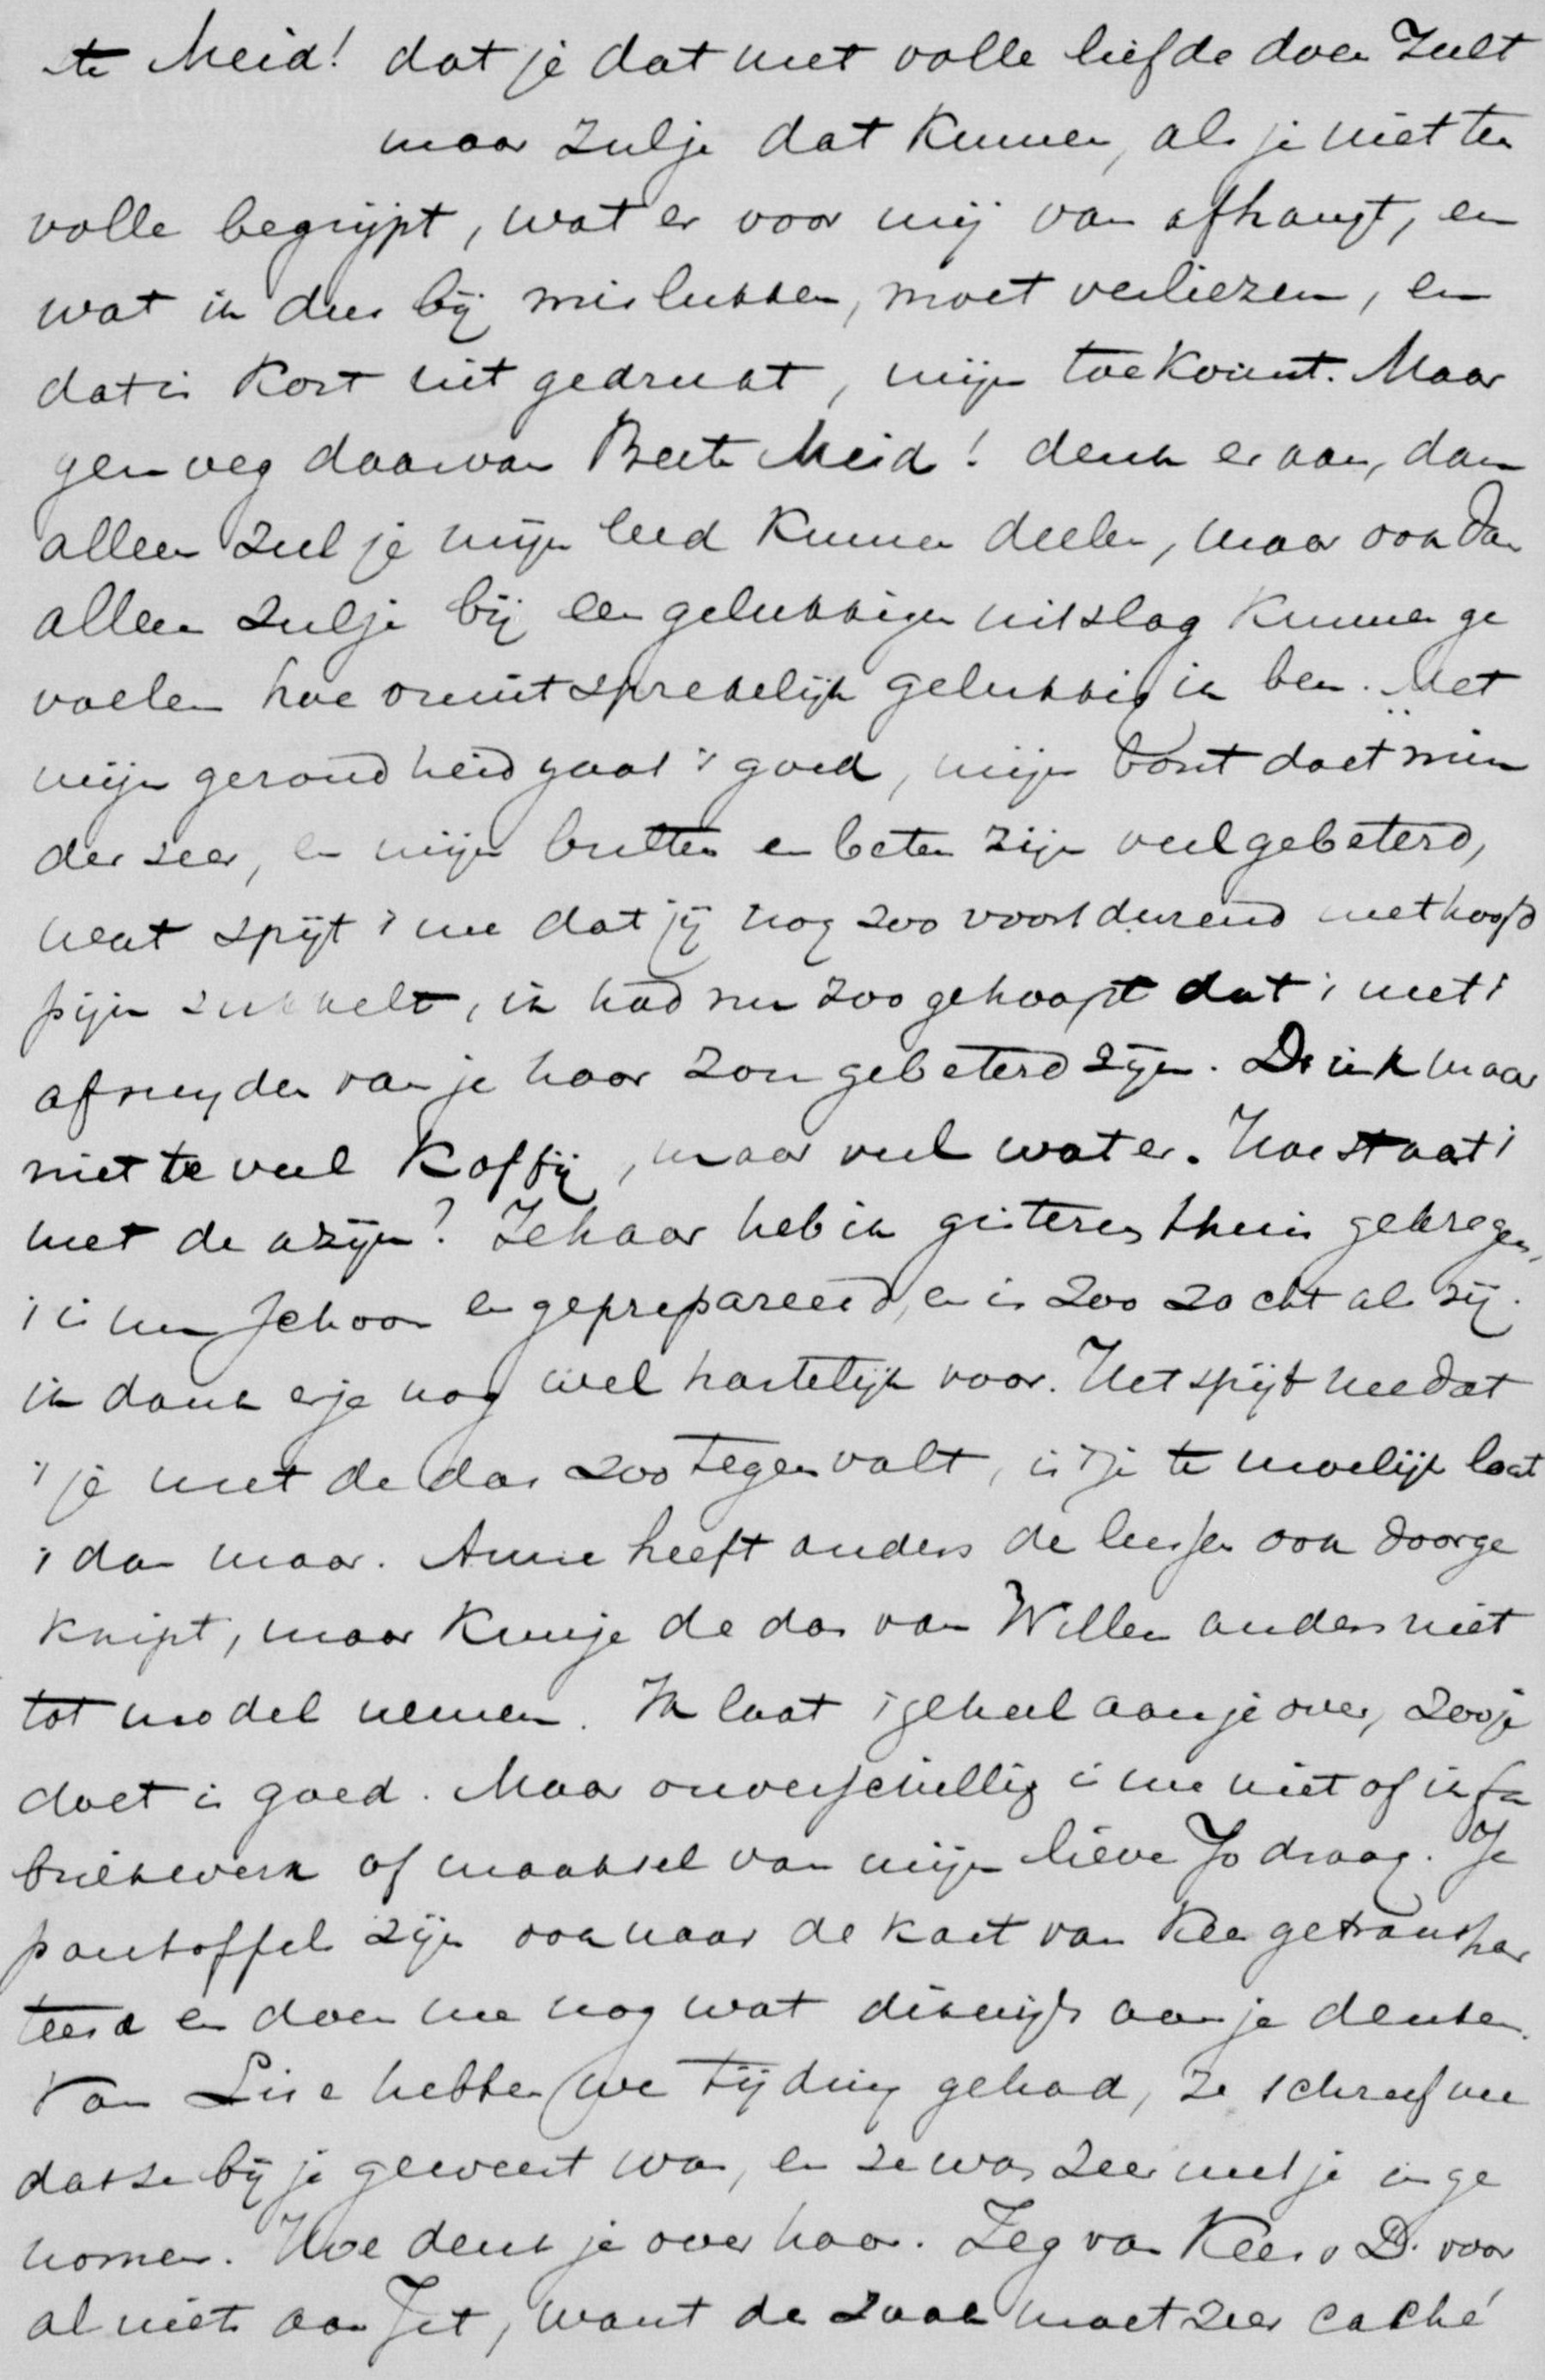 te Meid! dat je dat met volle liefde doen Zult
maar zulje dat Kunnen, als je niet ten
volle begrijpt, wat er voor mij van afhangt, en
wat ik dus bij mislukken, moet verliezen, en
dat is Kort uit gedrukt, mijn toekomst. Maar
genoeg daarvan Beste Meid! denk er aan, dan
alleen zul je mijn leed Kunnen deelen, maar ook dan
alleen zulje bij een gelukkigen uitslag Kunnen ge
voelen hoe onuitsprekelijk gelukkig ik ben. Met
mijn gezondheid gaat 't goed, mijn bout doet min
der zeer, en mijn bulten en beten zijn veel gebeterd,
wat spijt 't me dat jij nog zoo voortdurend met hoofd
pijn sukkelt, ik had nu zoo gehoopt dat 't met 't
afsnyden van je haar zou gebeterd zijn. Drink maar
niet te veel Koffij, maar veel water. Hoe staat 't
met de azijn? Je haar heb ik gisteren thuis gekregen,
't is nu schoon en geprepareerd, en is zoo zacht als zij.
ik dank erje nog wel hartelijk voor. Het spijt me dat
't je met de das zoo tegenvalt, is 't je te moeilijk laat
't dan maar. Anne heeft anders de lussen ook doorge
knipt, maar Kunje de das van Willem anders niet
tot model nemen. Ik laat 't geheel aan je over, zooje
doet is goed. Maar onverschillig is me niet of ik fa
briekwerk of maaksel van mijn lieve Jo draag. Je
pantoffels zijn ook naar de kast van Kee getranspor
teerd en doen me nog wat dikwijls aan je denken.
Van Lise hebben we tijding gehad, ze schreef me
dat ze bij je geweest was, en ze was zeer met je inge
nomen. Hoe denk je over haar. Zeg van Kees v D. voor
al niets aan Jet, want de zaak moet zeer caché